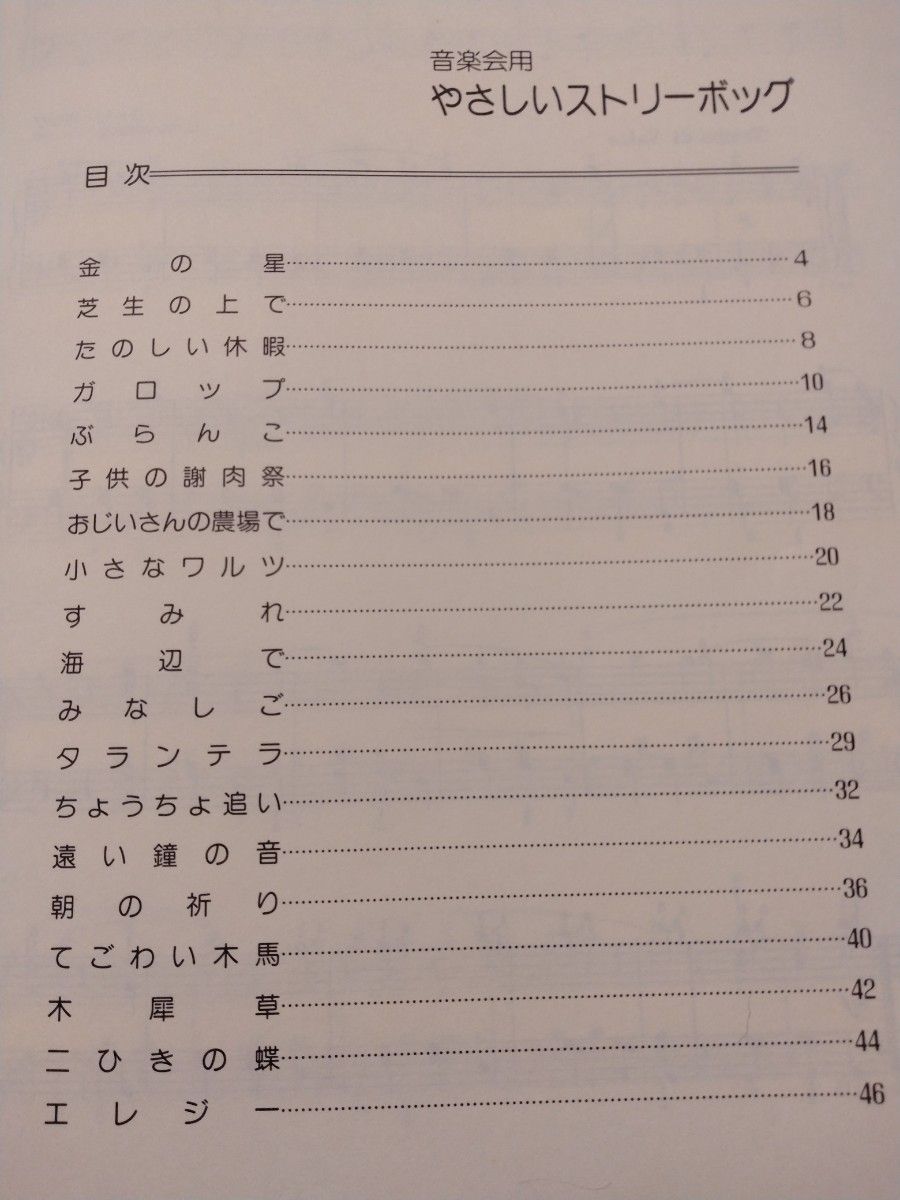 音楽会用
やさしいストリーボッグ
目次
金の星……4
芝生の上で……6
たのしい休暇……8
ガロップ……10
ぶらんこ……14
子供の謝肉祭……16
おじいさんの農場で……18
小さなワルツ……20
すみれ……22
海辺で……24
みなしご……26
タランテラ……29
ちょうちょ追い……32
遠い鐘の音……34
朝の祈り……36
てごわい木馬……40
木犀草……42
二ひきの蝶……44
エレジー……46